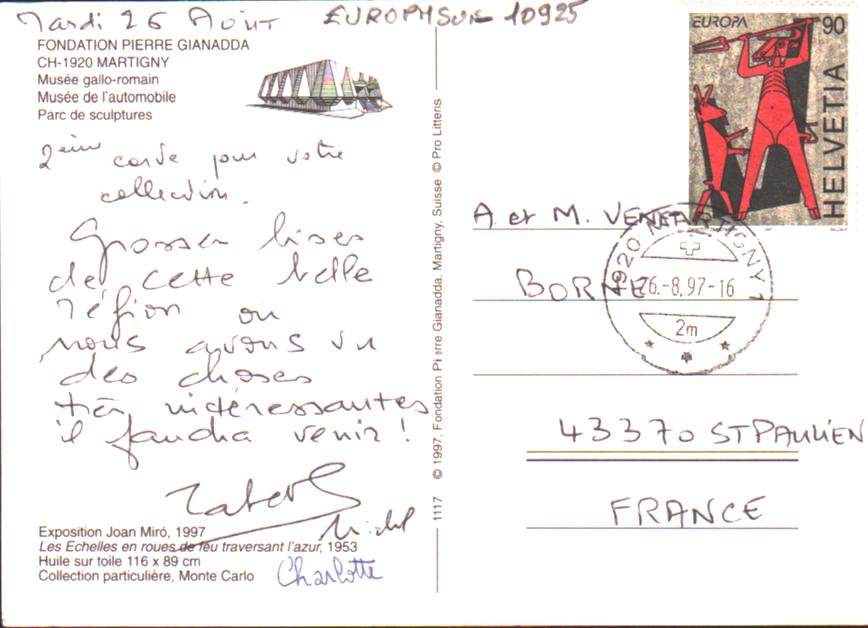 Mardi 26 Août
EUROPHSUR 10925
FONDATION PIERRE GIANADDA
CH-1920 MARTIGNY
Musée gallo-romain
Musée de l'automobile
Parc de sculptures
2ème carte pour votre
collection.
Grosses bises
de cette belle
région ou
nous avons vu
des choses
très intéressantes
il faudra venir !
Michel
Charlotte
Exposition Joan Miró, 1997
Les Echelles en roues de feu traversant l'azur, 1953
Huile sur toile 116 x 89 cm
Collection particulière, Monte Carlo
1117 © 1997, Fondation Pierre Gianadda, Martigny, Suisse © Pro Litteris
EUROPA
90
HELVETIA
1920 MARTIGNY 1
26.-8.97-16
2m
A et M. VENET
BORNE
43370 ST PAULIEN
FRANCE